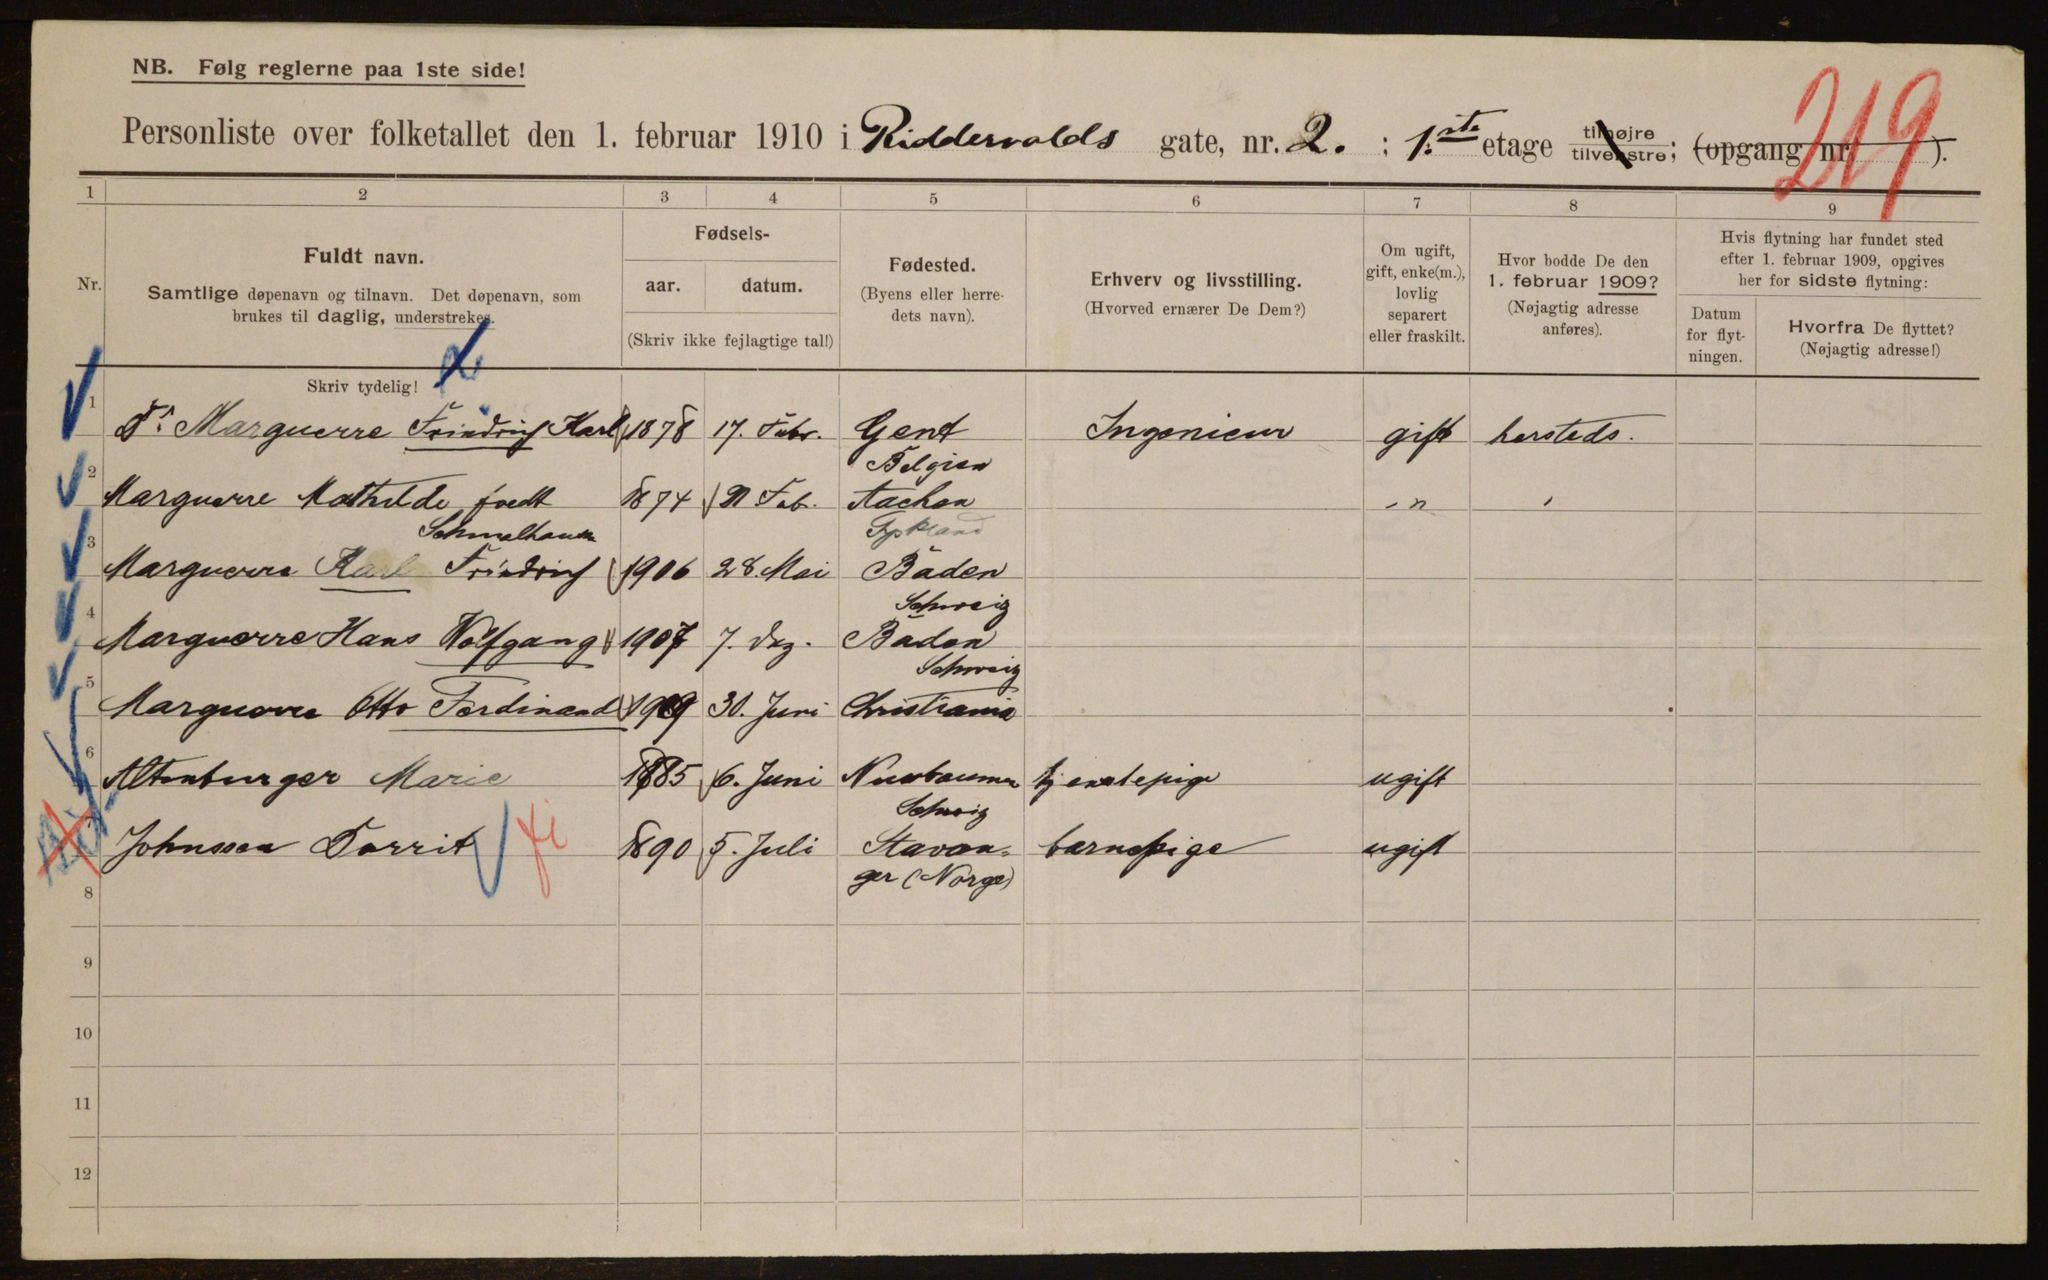 NB. Følg reglerne paa 1ste side!
219
Personliste over folketallet den 1. februar 1910 i Riddervolds gate, nr. 2. ; 1.ste etage tilhøjre tilvenstre; (opgang nr. ).
1 2 3 4 5 6 7 8 9
Nr.
Fuldt navn.
Samtlige døpenavn og tilnavn. Det døpenavn, som
brukes til daglig, understrekes.
Skriv tydelig!
Fødsels-
aar. datum.
(Skriv ikke fejlagtige tal!)
Fødested.
(Byens eller herre-
dets navn).
Erhverv og livsstilling.
(Hvorved ernærer De Dem?)
Om ugift,
gift, enke(m.),
lovlig
separert
eller fraskilt.
Hvor bodde De den
1. februar 1909?
(Nøjagtig adresse
anføres).
Hvis flytning har fundet sted
efter 1. februar 1909, opgives
her for sidste flytning:
Datum
for flyt-
ningen.
Hvorfra De flyttet?
(Nøjagtig adresse!)
1 Dr. Marguerre Friedrich Karl 1878 17. Febr. Gent Ingenieur gift hersteds.
Belgien
2 Marguerre Mathilde foedt 1874 21 Feb. Aachen " "
Schmalhausen Tyskland
3 Marguerre Karl Friedrich 1906 28. Mai Baden
Schweiz
4 Marguerre Hans Wolfgang 1907 7. Dez. Baden
Schweiz
5 Marguerre Otto Ferdinand 1909 30. Juni Christiania
6 Altenburger Marie 1885 6. Juni Nussbaumen tjenestepige ugift
Schweiz
7 Johnssen Dorrit 1890 5. Juli Stavan- barnepige ugift
ger (Norge)
8
9
10
11
12